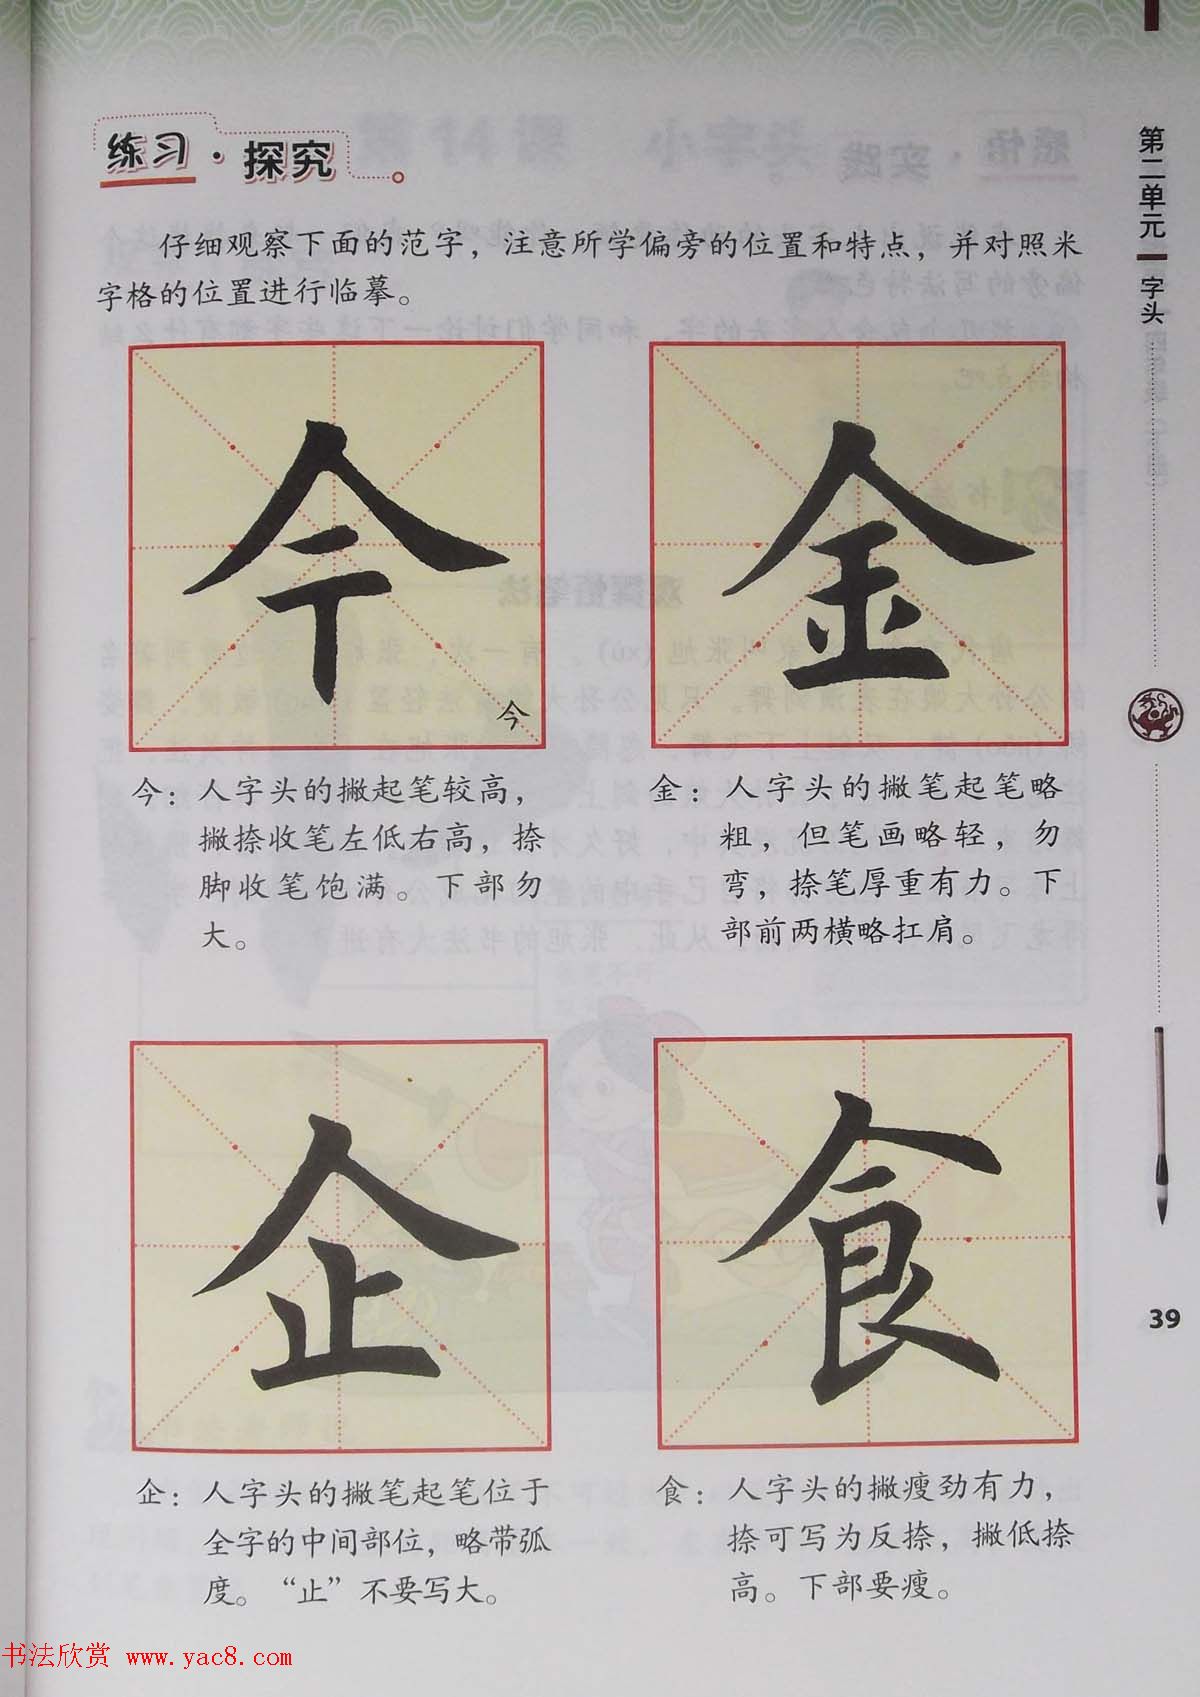 练习·探究
仔细观察下面的范字，注意所学偏旁的位置和特点，并对照米
字格的位置进行临摹。
今
今
金
今：人字头的撇起笔较高，
撇捺收笔左低右高，捺
脚收笔饱满。下部勿
大。
金：人字头的撇笔起笔略
粗，但笔画略轻，勿
弯，捺笔厚重有力。下
部前两横略扛肩。
企
食
企：人字头的撇笔起笔位于
全字的中间部位，略带弧
度。“止”不要写大。
食：人字头的撇瘦劲有力，
捺可写为反捺，撇低捺
高。下部要瘦。
第二单元
字头
39
书法欣赏 www.yac8.com